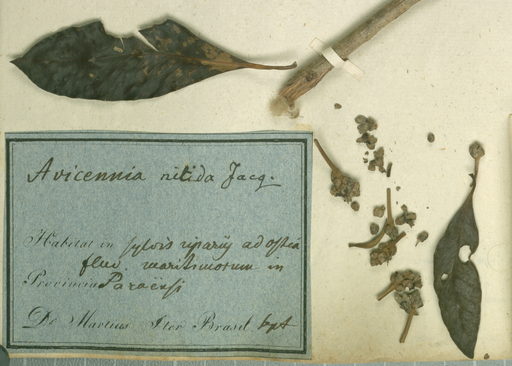 Avicennia nitida Jacq.
Habitat in sylvis ripariis ad ostia
fluv. maritimorum in
Provincia Paraënsi
De Martius Iter Brasil.